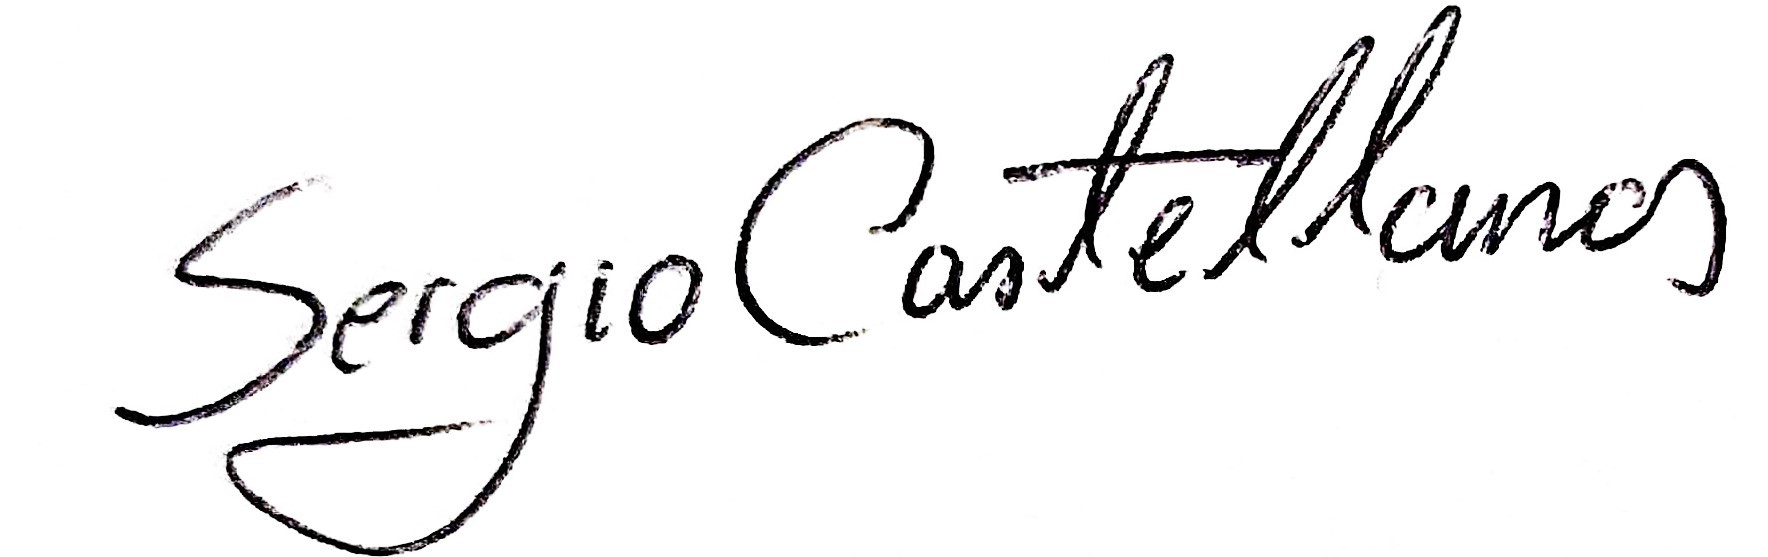 Sergio Castellanos